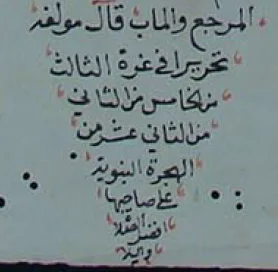 المرجع والماب قال مولفه
تحريرا في غرة الثالث
من الخامس من الثاني
من الثاني عشر من
الهجرة النبوية
على صاحبها
افضل الصلاة